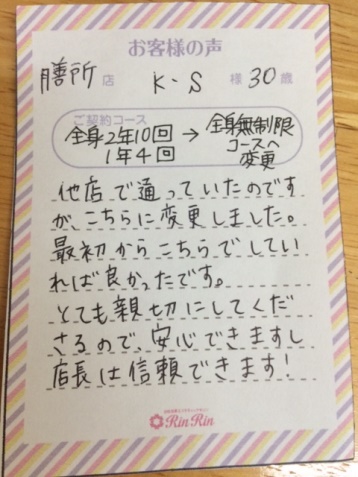 お客様の声
膳所 店 K・S 様 30 歳
ご契約コース
全身2年10回 → 全身無制限
1年4回 コースへ
変更
他店で通っていたのです
が、こちらに変更しました。
最初からこちらでしてい
れば良かったです。
とても親切にしてくだ
さるので、安心できますし
店長は信頼できます!
RinRin